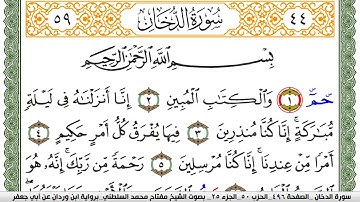 ٥٩ سُورَةُ الدُّخَانِ ٤٤
بِسْمِ اللَّهِ الرَّحْمَٰنِ الرَّحِيمِ
حمٓ ١ وَالْكِتَابِ الْمُبِينِ ٢ إِنَّا أَنزَلْنَاهُ فِي لَيْلَةٍ
مُبَارَكَةٍ إِنَّا كُنَّا مُنذِرِينَ ٣ فِيهَا يُفْرَقُ كُلُّ أَمْرٍ حَكِيمٍ ٤
أَمْرًا مِنْ عِندِنَا إِنَّا كُنَّا مُرْسِلِينَ ٥ رَحْمَةً مِن رَبِّكَ إِنَّهُ هُوَ
سورة الدخان _ الصفحة ٤٩٦ _ الحزب ٥٠ _ الجزء ٢٥ _ بصوت الشيخ مفتاح محمد السلطني _ برواية ابن وردان عن أبي جعفر